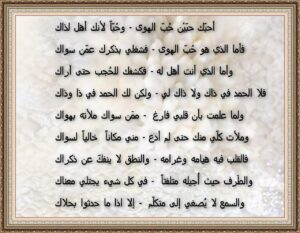 أحبك حبّين حُبّ الهوى - وحُبّاً لأنك أهل لذاك
فأما الذي هو حُبّ الهوى - فشغلي بذكرك عمّن سواك
وأما الذي أنت أهل له - فكشفك للحُجب حتى أراك
فلا الحمد في ذاك ولا ذاك لي - ولكن لك الحمد في ذا وذاك
ولما علمت بأن قلبي فارغ - ممّن سواك ملأته بهواك
وملأت كلّي منك حتى لم أدَع - مني مكاناً خالياً لسواك
فالقلب فيه هيامه وغرامه - والنطق لا ينفكّ عن ذكراك
والطرف حيث أجيله متلفتاً - في كل شيء يجتلي معناك
والسمع لا يُصغي إلى متكلّم - إلا اذا ما حدثوا بحلاك